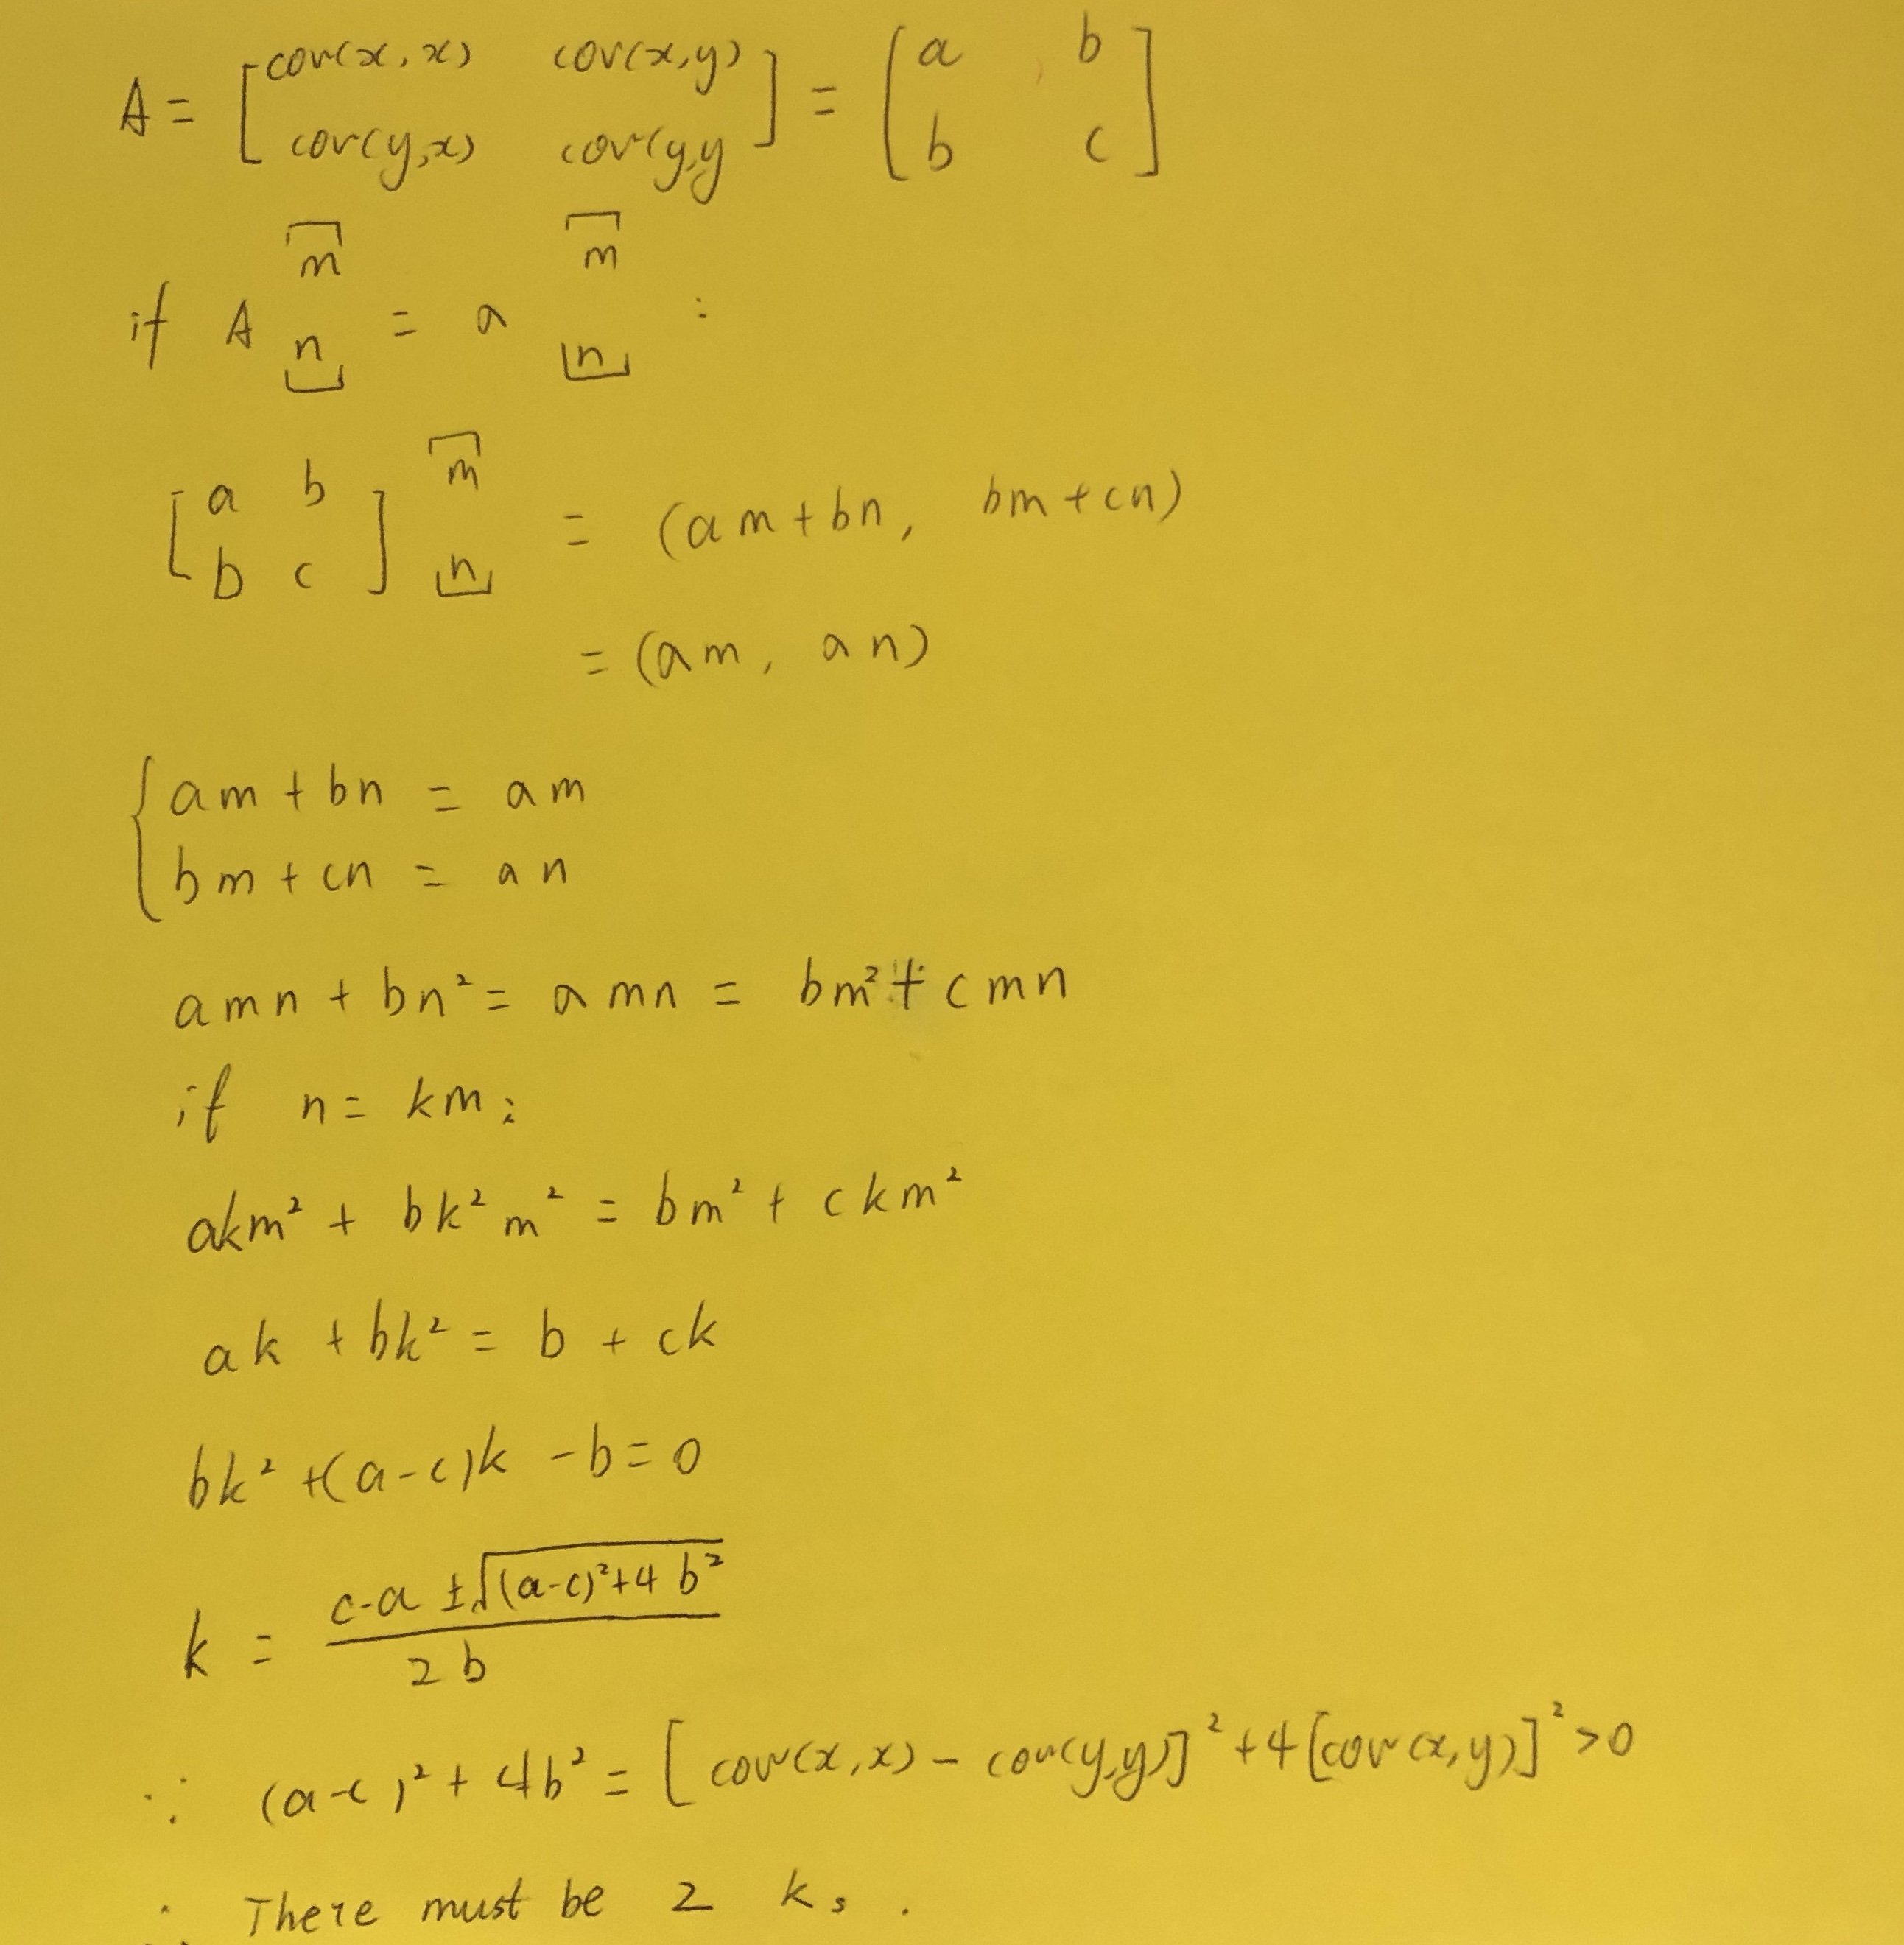 A = [cov(x,x) cov(x,y) cov(y,x) cov(y,y] = [a b b c]
if A [m n] = a [m n] :
[a b b c] [m n] = (am + bn, bm + cn)
= (am, an)
{ am + bn = am
bm + cn = an
amn + bn² = amn = bm² + cmn
if n = km :
akm² + bk²m² = bm² + ckm²
ak + bk² = b + ck
bk² + (a-c)k - b = 0
k = (c-a ± √((a-c)² + 4b²)) / 2b
∵ (a-c)² + 4b² = [cov(x,x) - cov(y,y)]² + 4[cov(x,y)]² > 0
∴ There must be 2 ks.